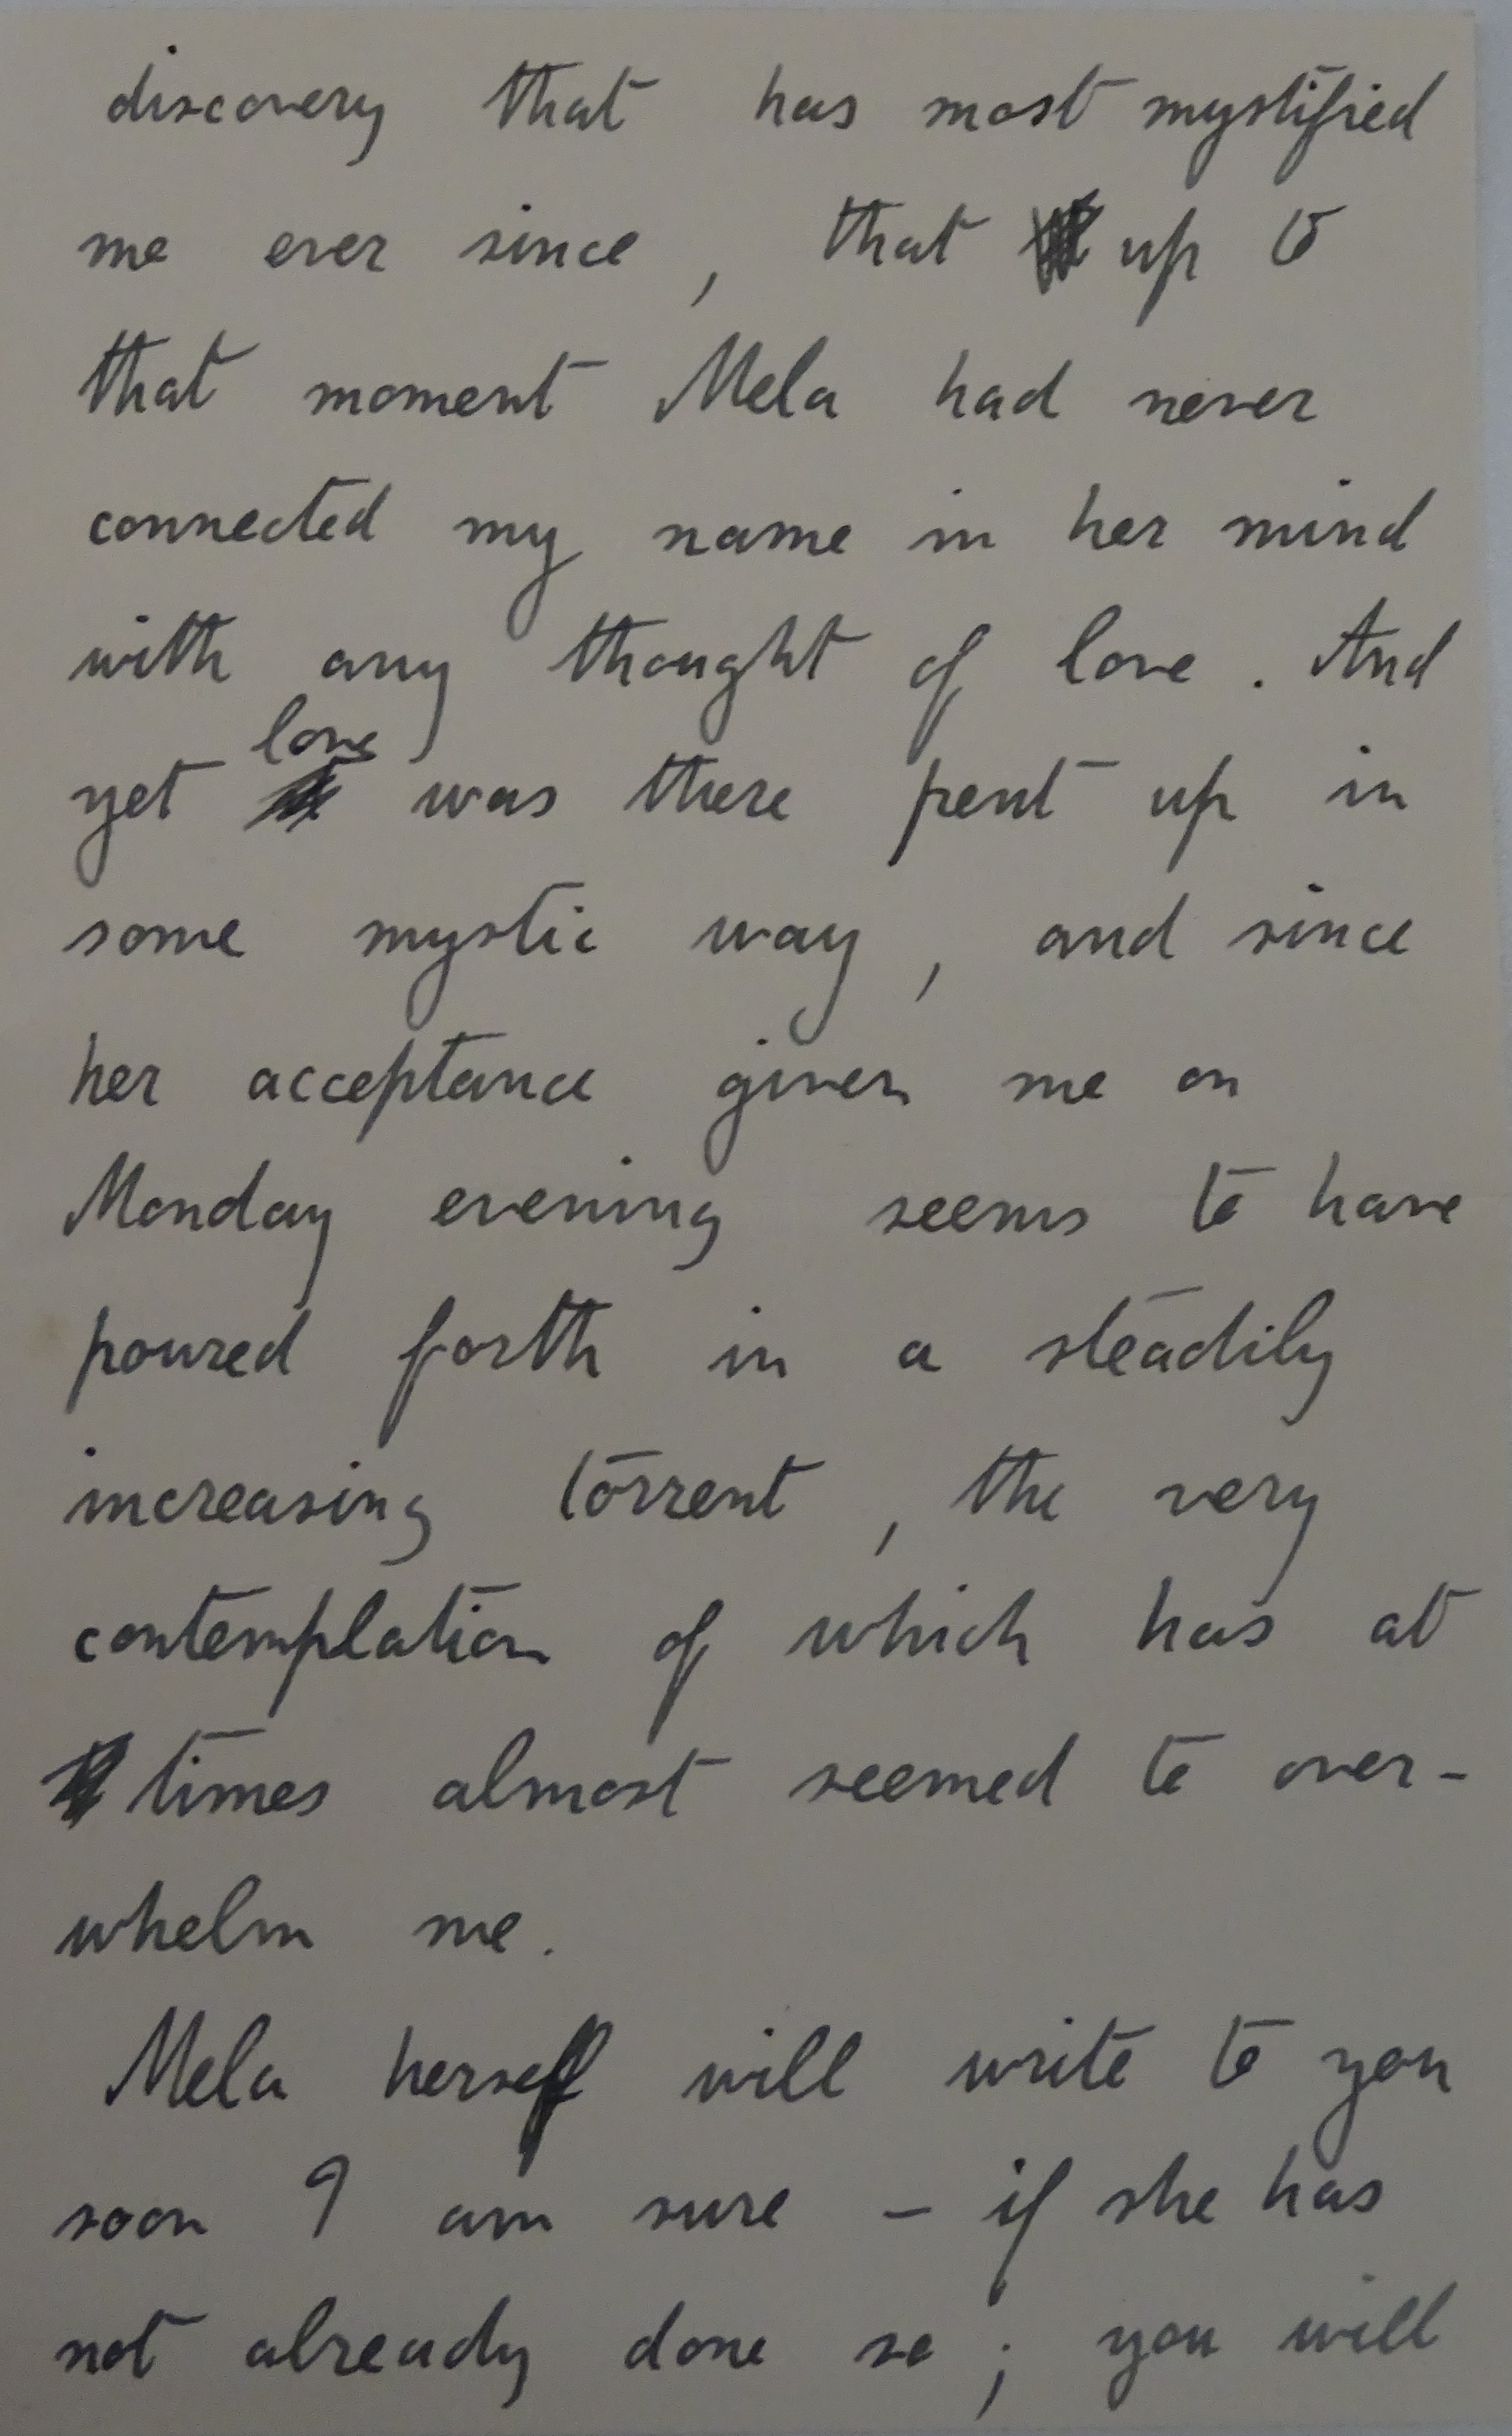 discovery that has most mystified
me ever since, that up to
that moment Mela had never
connected my name in her mind
with any thought of love. And
yet love was there pent up in
some mystic way, and since
her acceptance given me on
Monday evening seems to have
poured forth in a steadily
increasing torrent, the very
contemplation of which has at
times almost seemed to over-
whelm me.
Mela herself will write to you
soon I am sure – if she has
not already done so; you will